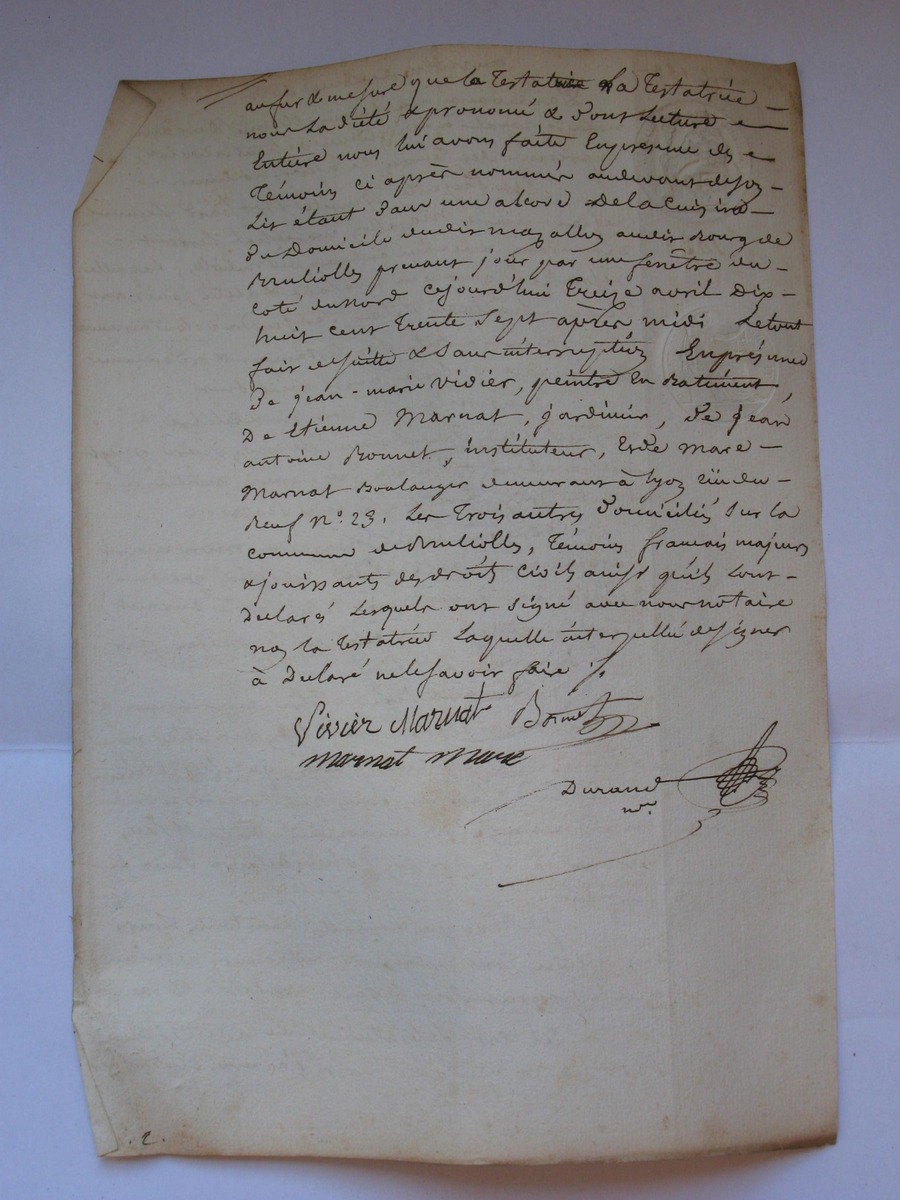 au fur & mesure que la Testatrice la Testatrice
nous la dicté & prononcé & dont Lecture
Entière nous lui avons faite En présence des
Témoins ci après nommés audevant de son
Lit étant dans une alcove De la Cuisine
Du Domicile dudit mazallon audit Bourg de
Brulliolles prenant jour par une fenêtre du
coté du nord cejourd'hui Treize avril Dix
huit cent Trente Sept après midi Le tout
fait desuitte & sans interruption En présence
De jean-marie vivier, peintre En Batiment
De Etienne Marnat, jardinier, De jean
antoine Bonnet, instituteur, Et de marc
Marnat Boulanger demeurant à Lyon rüe du
Beuf N° 23. Les Trois autres Domiciliés Sur la
commune de Brulliolles, Témoins francais majeurs
& jouissants des droits civils ainsi qu'ils L'ont
Declaré Lesquels ont signé avec nous notaire
non la Testatrice Laquelle interpellé de signer
à Declaré ne le savoir faire /.
Vivier Marnat Bonnet
marnat marc
Durand
nre.
2.